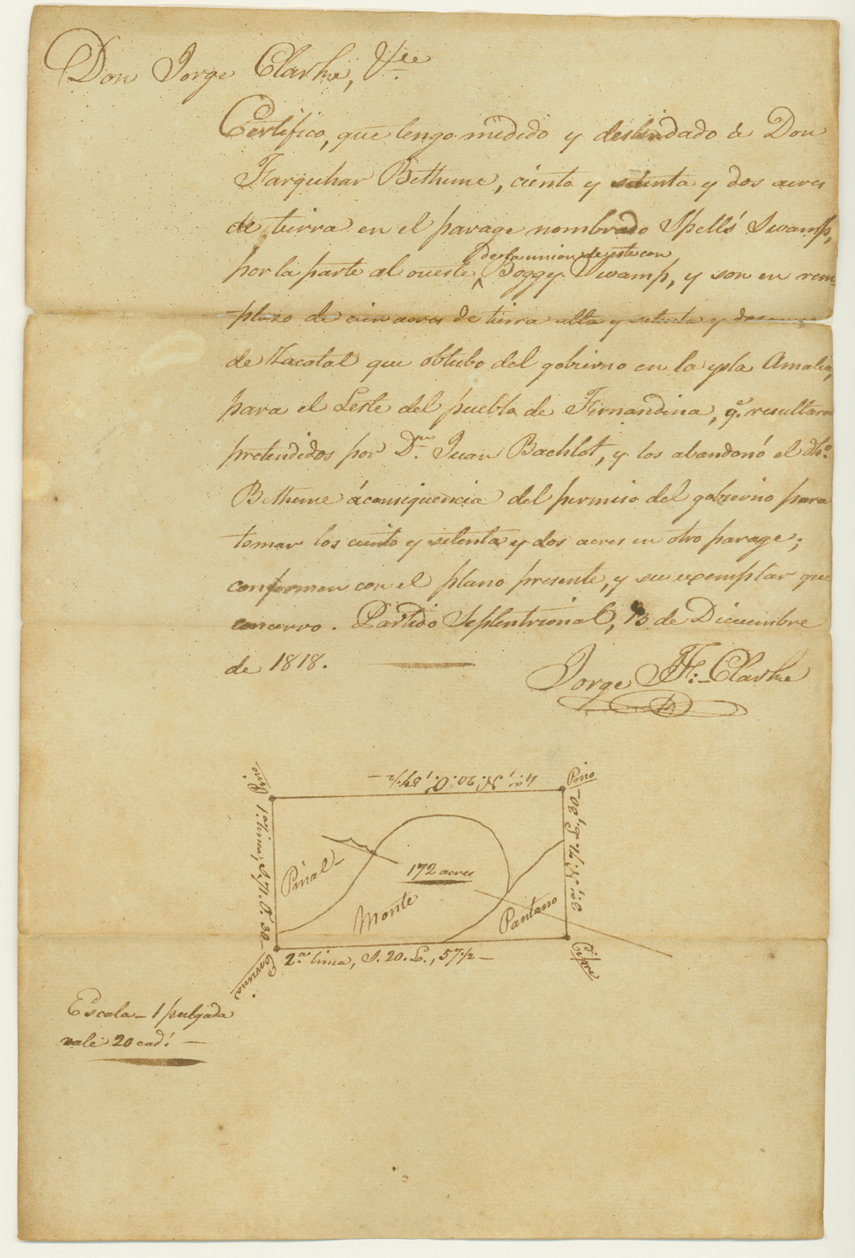 Don Jorge Clarke, &ce
Certifico, que tengo medido y deslindado á Don
Farquhar Bethune, ciento y setenta y dos acres
de tierra en el parage nombrado Spells' Swamp,
de la union de este con
por la parte al oueste Boggy Swamp, y son en rem
plazo de cien acres de tierra alta y setenta y dos
de Zacatal que obtubo del gobierno en la ysla Amalia,
para el Leste del pueblo de Fernandina, qe. resultaron
pretendidos por Dn. Juan Bachlot, y los abandonó el dho.
Bethune á consiquencia del permiso del gobierno para
tomar los ciento y setenta y dos acres en otro parage;
conformen con el plano presente, y su exemplar que
concervo. Partido Septentrional, 13 de Diciembre
de 1818.
Jorge J. F. Clarke
4a., N. 20. O., 57½ –
Pino
Pino
1a. linea, S. 71. O. 30 –
3a., N. 71. E., 30 –
Pinal –
172 acres
Monte
Pantano
2a. linea, S. 20. E., 57½ –
Cipre
Escala – 1 pulgada
vale 20 cads. –